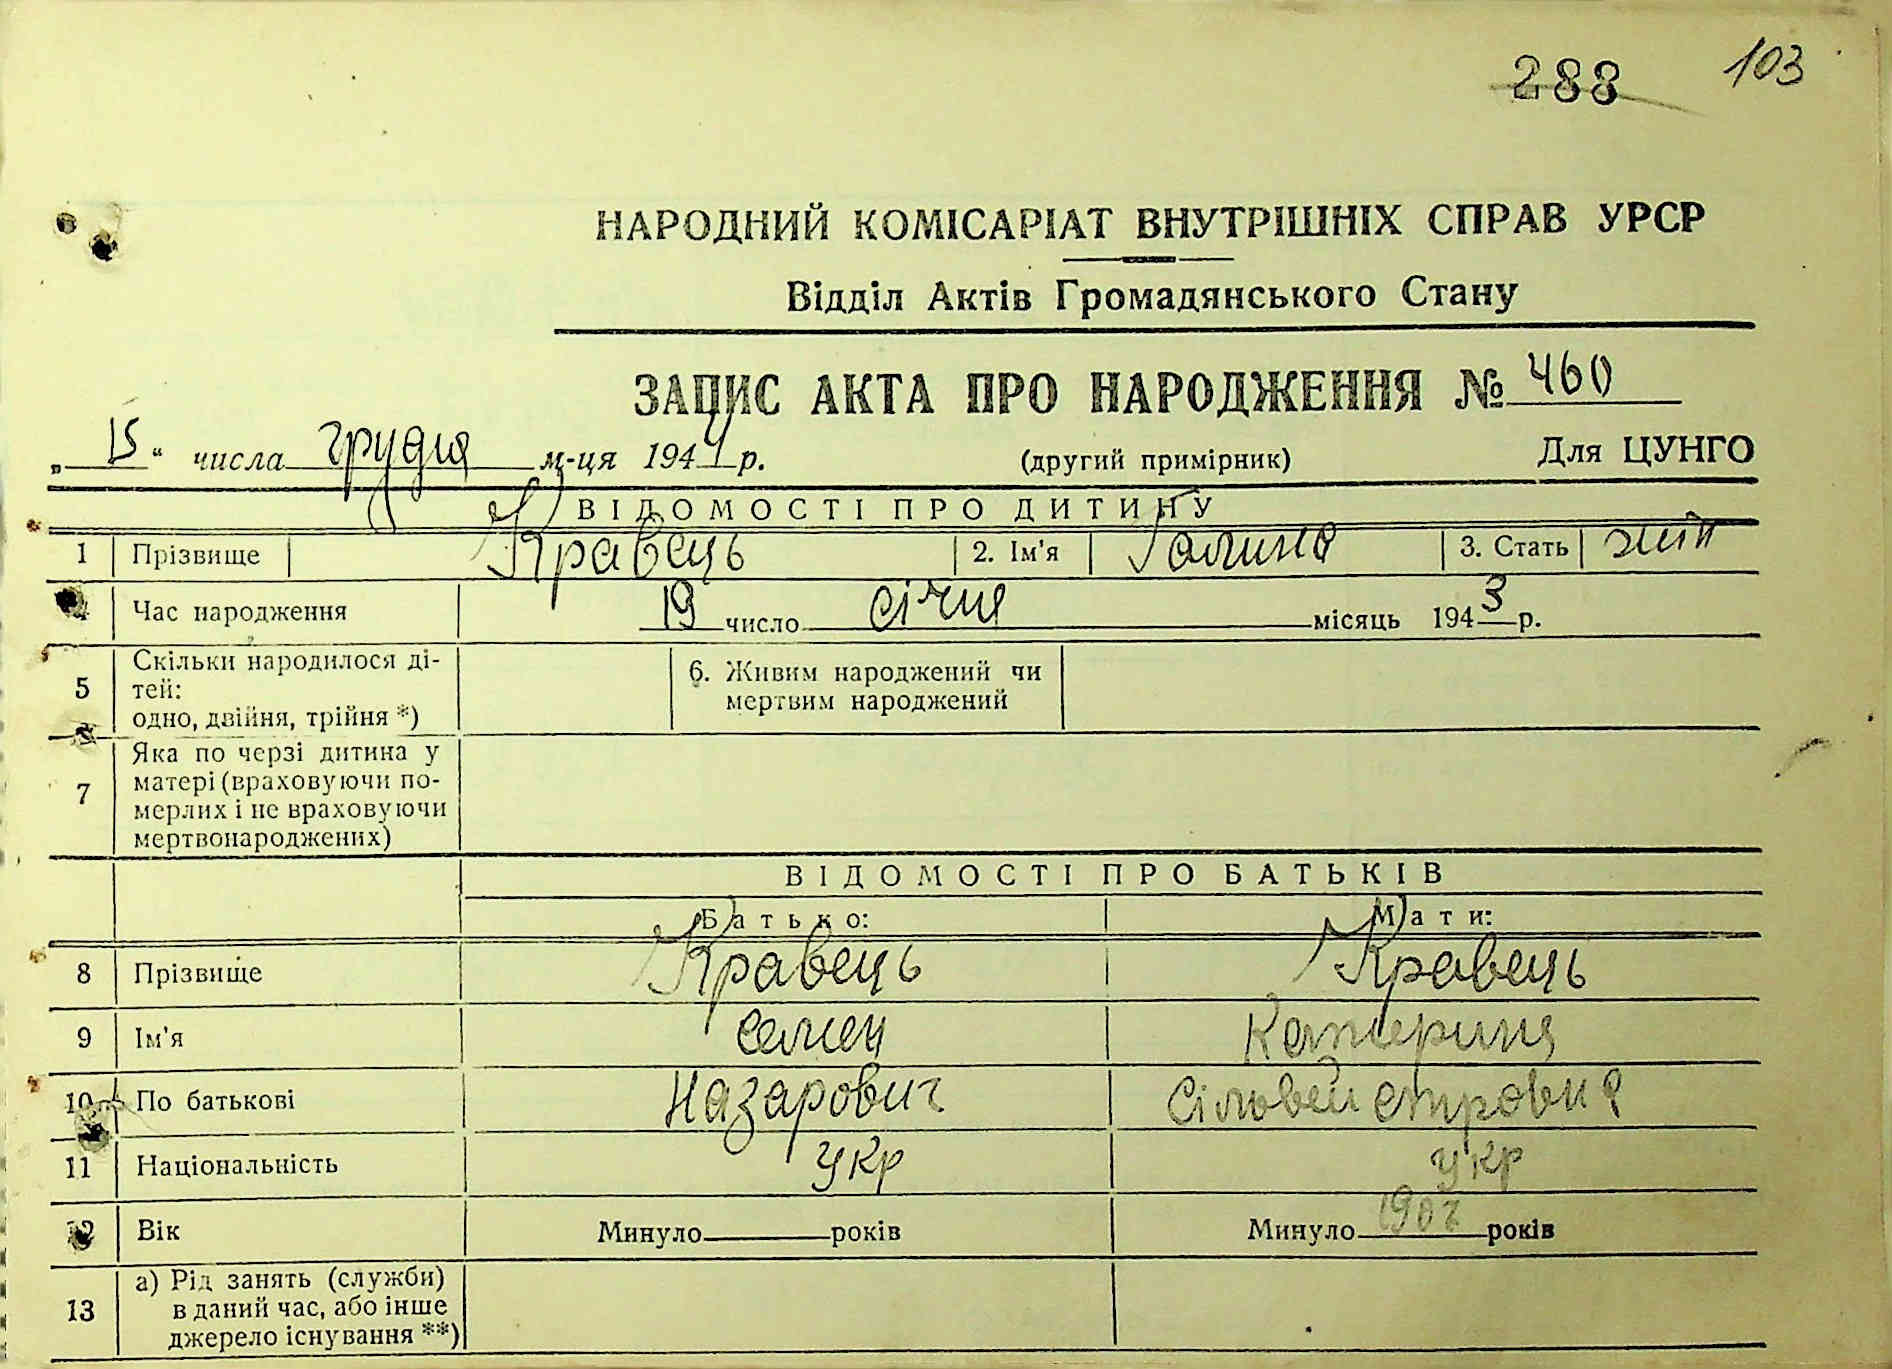 288 103
НАРОДНИЙ КОМІСАРІАТ ВНУТРІШНІХ СПРАВ УРСР
Відділ Актів Громадянського Стану
ЗАПИС АКТА ПРО НАРОДЖЕННЯ № 460
„15“ числа грудня м-ця 1944 р. (другий примірник) Для ЦУНГО
ВІДОМОСТІ ПРО ДИТИНУ
1 Прізвище Кравець 2. Ім'я Галина 3. Стать жін
4 Час народження 19 число січня місяць 1943 р.
5 Скільки народилося ді-
тей:
одно, двійня, трійня *)
6. Живим народжений чи
мертвим народжений
7 Яка по черзі дитина у
матері (враховуючи по-
мерлих і не враховуючи
мертвонароджених)
ВІДОМОСТІ ПРО БАТЬКІВ
Батько: Мати:
8 Прізвище Кравець Кравець
9 Ім'я Семен Катерина
10 По батькові Назарович Сільвейстровна
11 Національність укр укр
12 Вік Минуло років Минуло років
13 а) Рід занять (служби)
в даний час, або інше
джерело існування **)